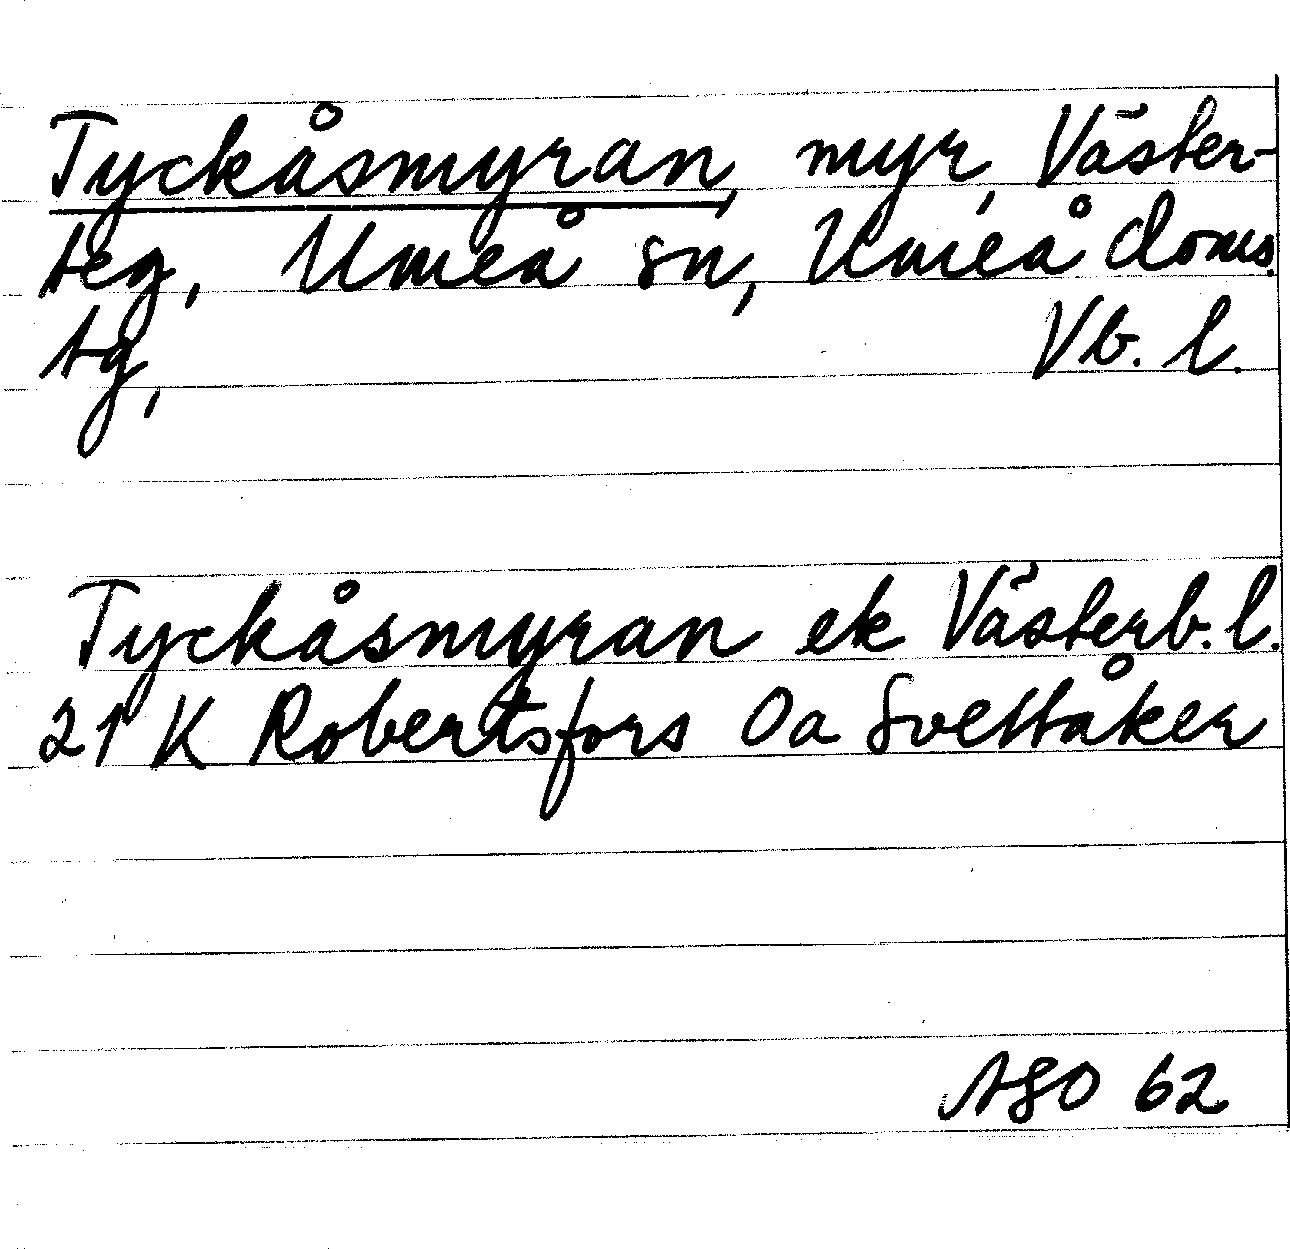 Tyckåsmyran, myr, Väster-
teg, Umeå sn, Umeå doms.
tg, Vb. l.
Tyckåsmyran ek Västerb. l.
21 K Robertsfors Oa Svettåker
ASO 62